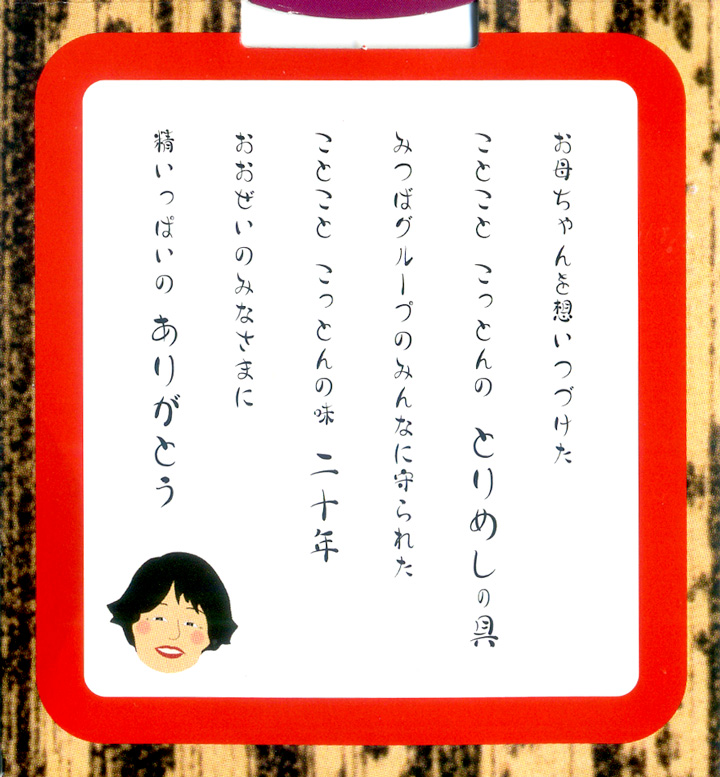 お母ちゃんを想いつづけた
ことこと こっとんの とりめしの具
みつばグループのみんなに守られた
ことこと こっとんの味 二十年
おおぜいのみなさまに
精いっぱいの ありがとう